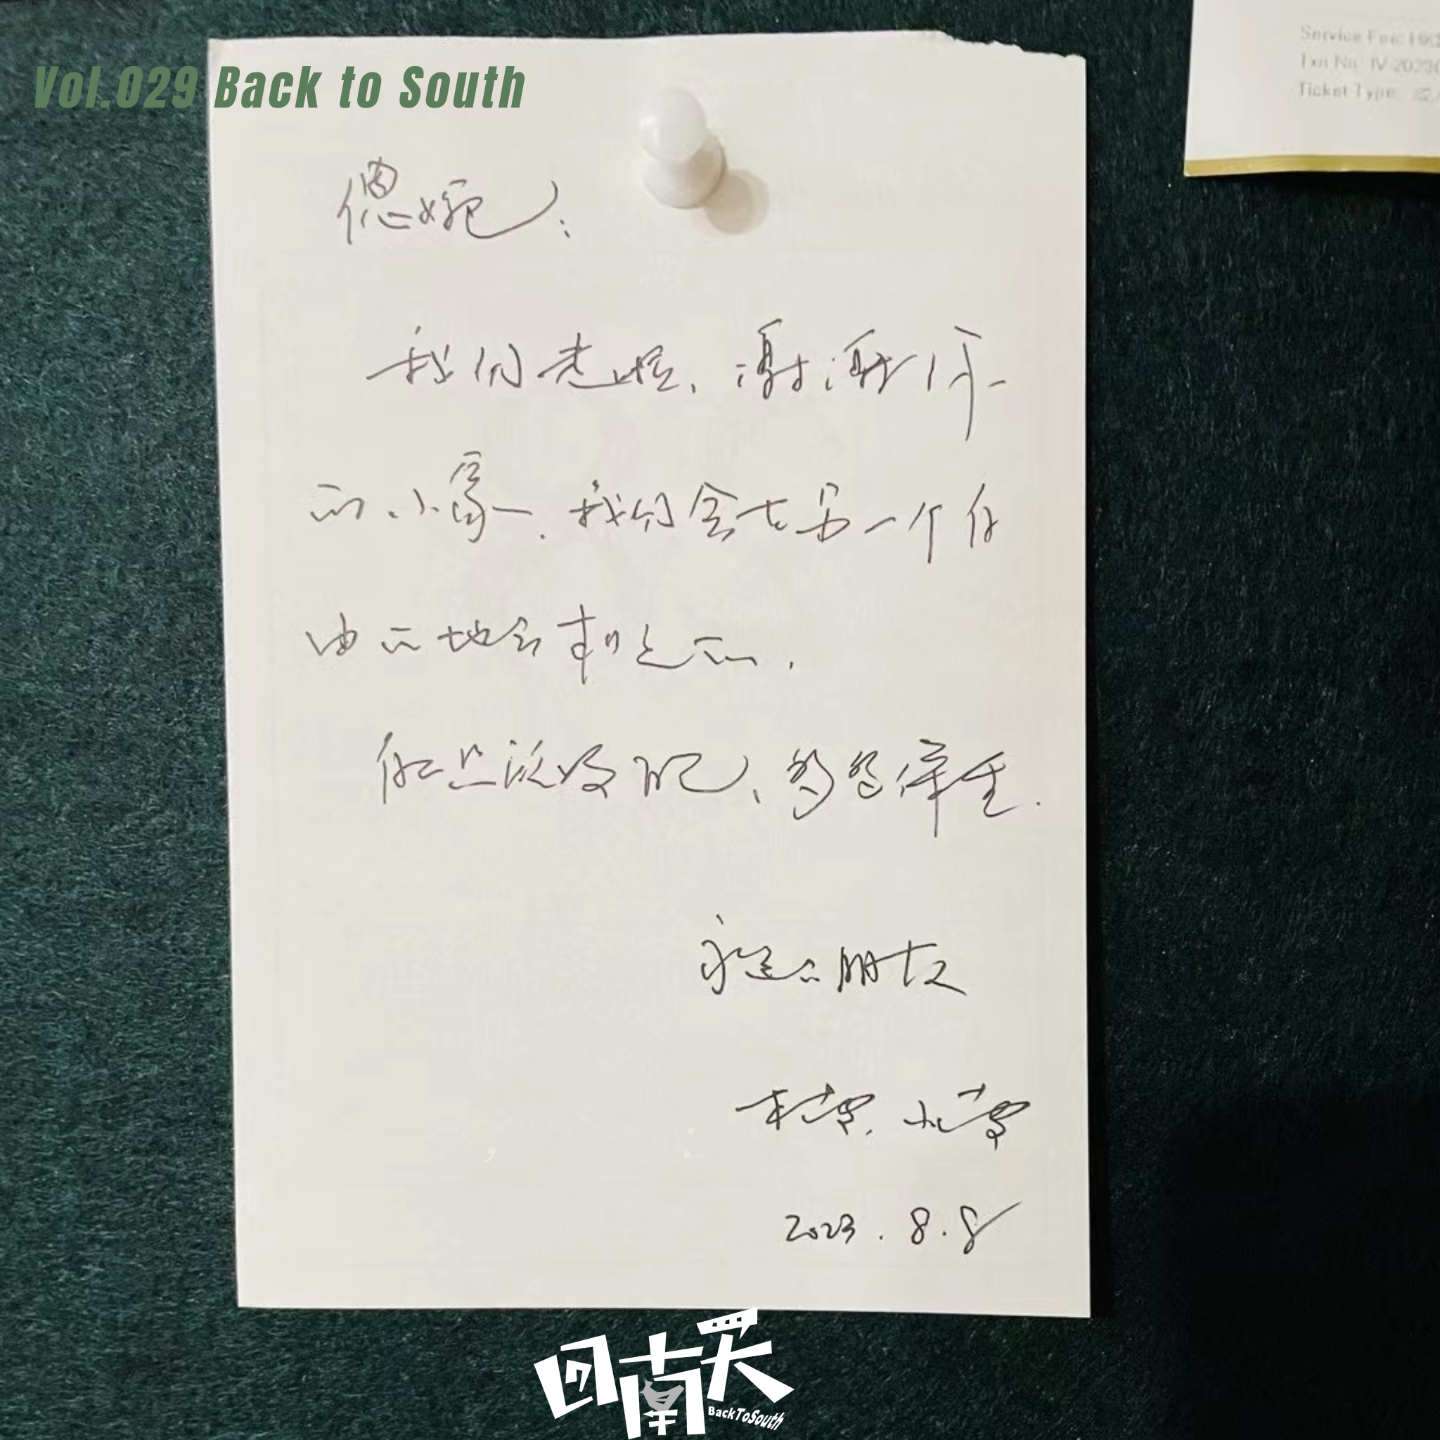 Vol.029 Back to South
Service Fee:
Txn No: IV-2023
Ticket Type:
偲婉：
我们走啦，谢谢你
的小家，我们会在另一个自
由的地方相见的。
多多保重。
永远的朋友
2023.8.8
回南天
BackToSouth